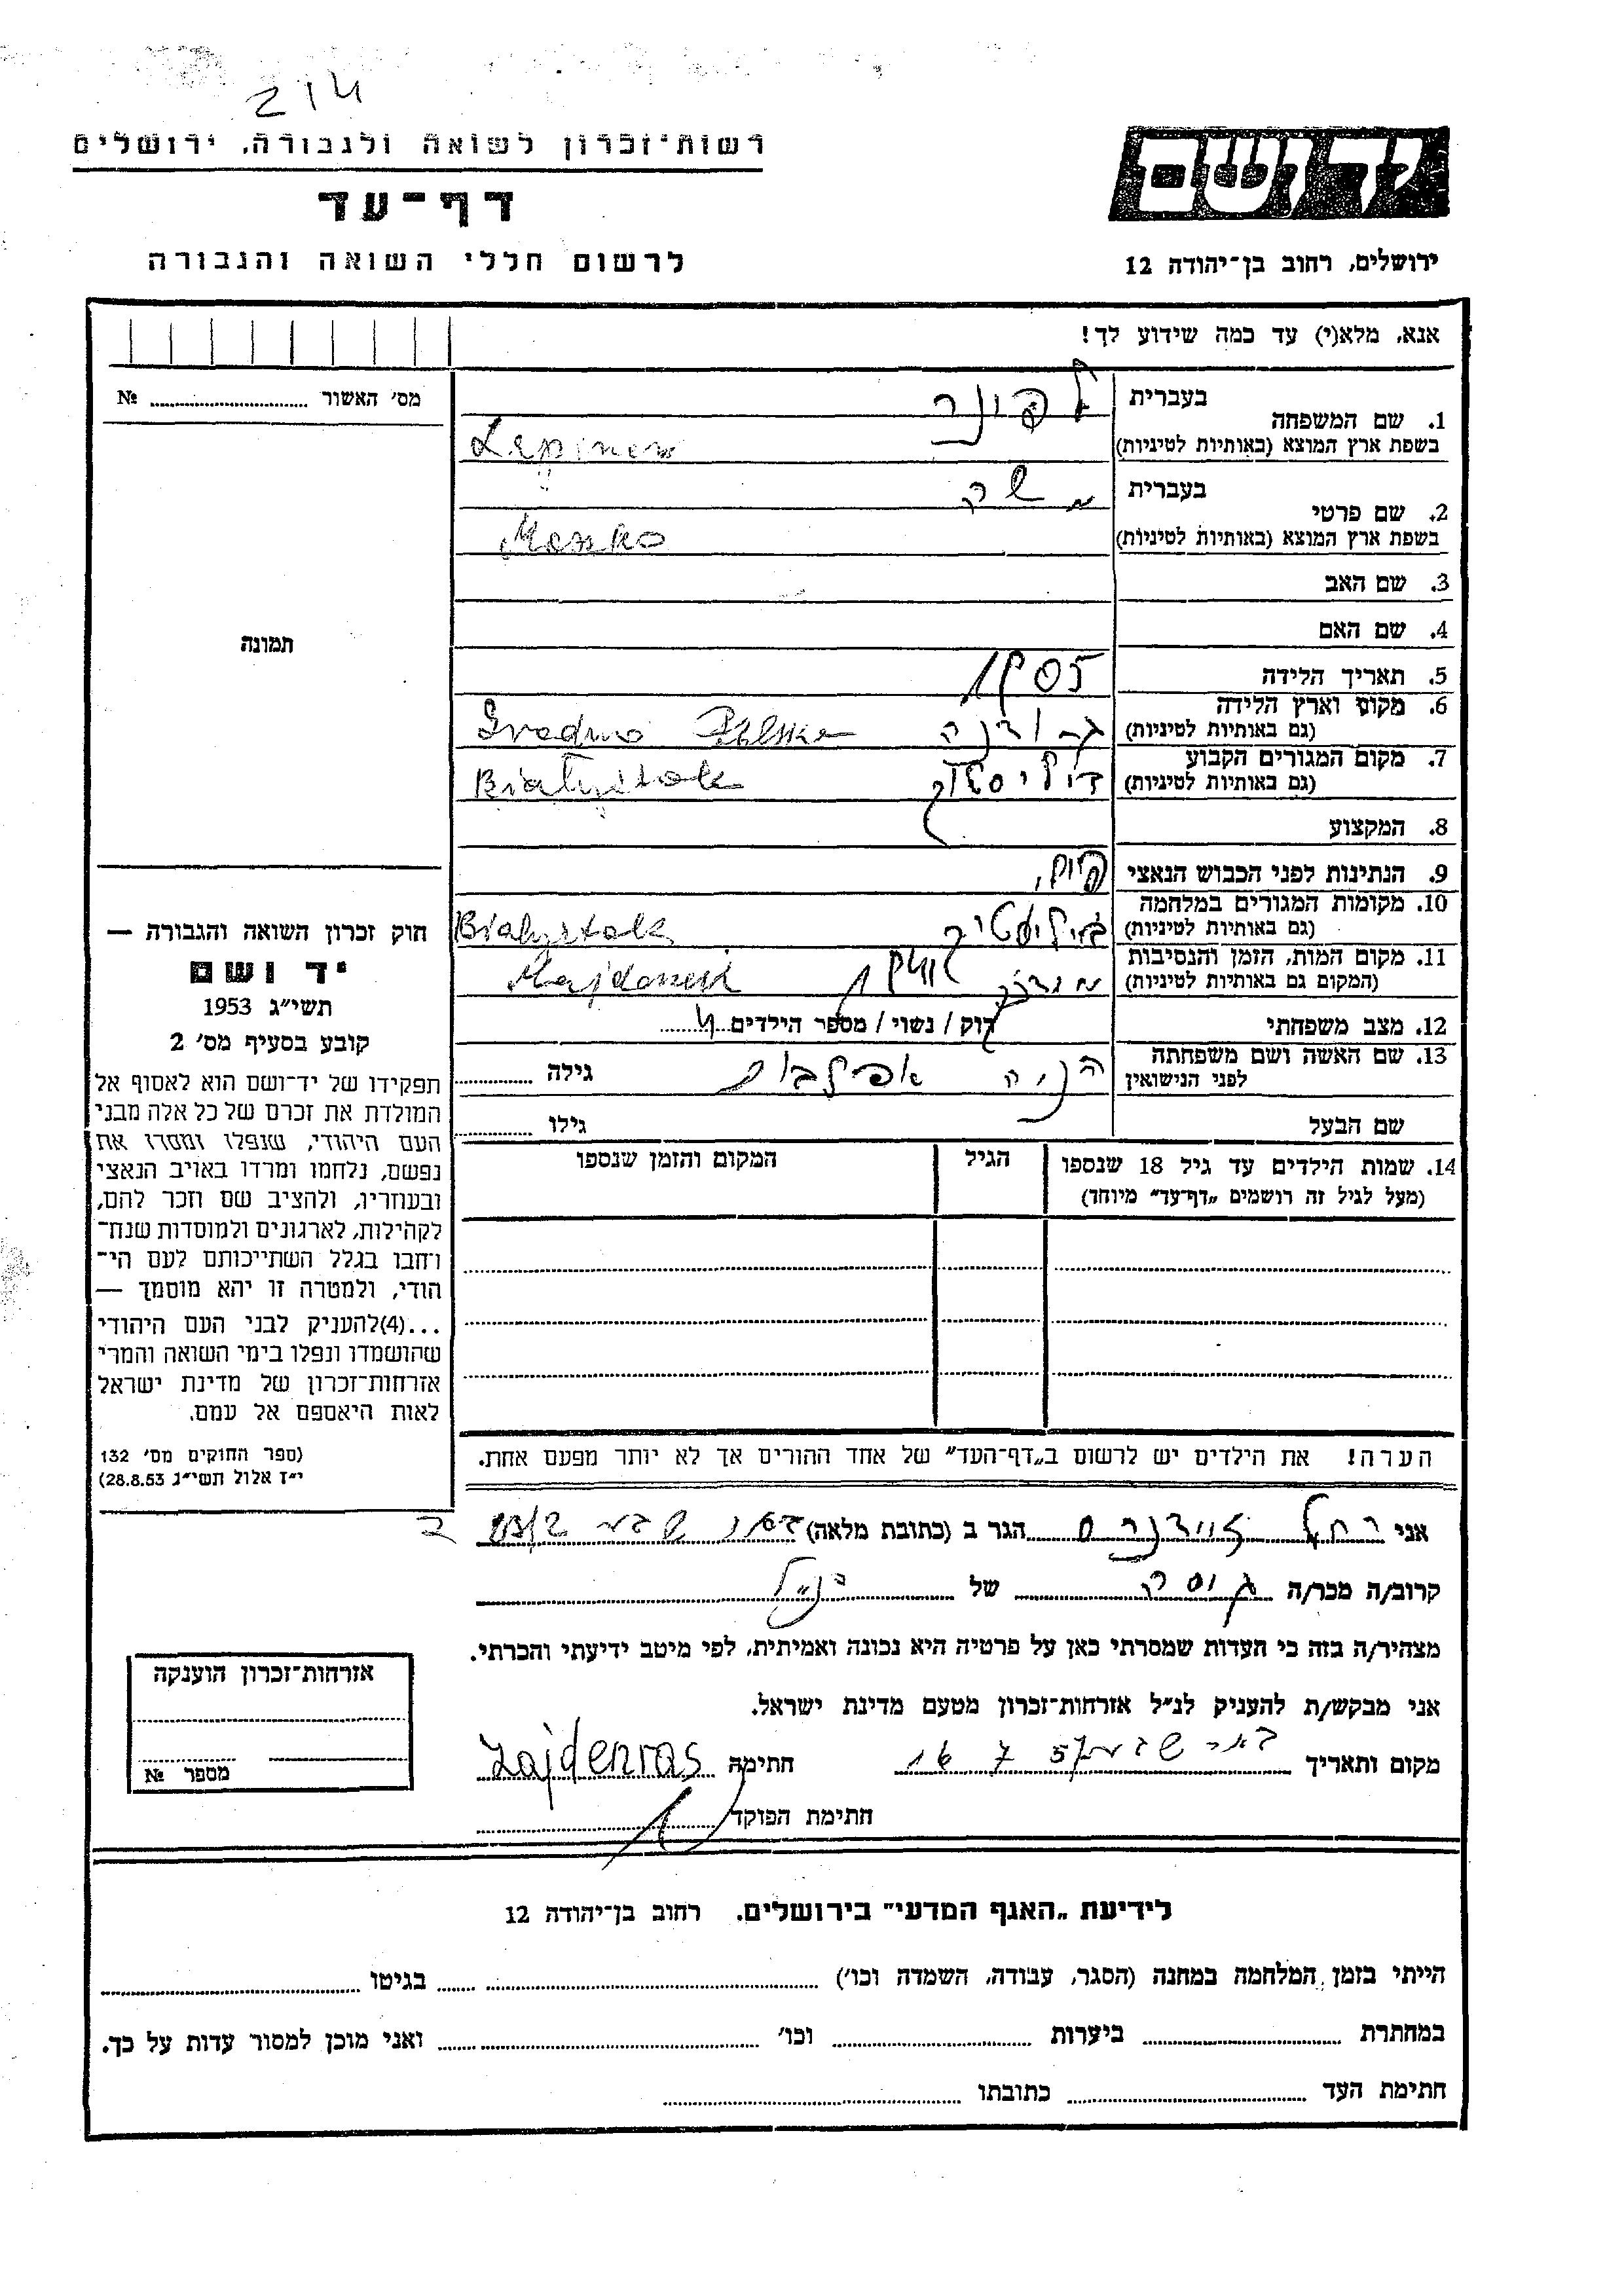 214
רשות־זכרון לשואה ולגבורה, ירושלים
דף־עד
לרשום חללי השואה והגבורה
יד ושם
ירושלים, רחוב בן־יהודה 12
אנא, מלא(י) עד כמה שידוע לך!
מס׳ האשור № ........
תמונה
1. שם המשפחה בעברית לפינר
בשפת ארץ המוצא (באותיות לטיניות) Lepiner
2. שם פרטי בעברית משה
בשפת ארץ המוצא (באותיות לטיניות) Moszko
3. שם האב
4. שם האם
5. תאריך הלידה 1905
6. מקום וארץ הלידה
(גם באותיות לטיניות) גרודנה Grodno Polska
7. מקום המגורים הקבוע
(גם באותיות לטיניות) Białystok
8. המקצוע
9. הנתינות לפני הכבוש הנאצי
10. מקומות המגורים במלחמה
(גם באותיות לטיניות) Białystok
11. מקום המות, הזמן והנסיבות
(המקום גם באותיות לטיניות) Majdanek
12. מצב משפחתי רוק / נשוי / מספר הילדים
13. שם האשה ושם משפחתה
לפני הנישואין גילה
שם הבעל גילו
14. שמות הילדים עד גיל 18 שנספו הגיל המקום והזמן שנספו
(מעל לגיל זה רושמים „דף־עד״ מיוחד)
הערה! את הילדים יש לרשום ב„דף־העד״ של אחד ההורים אך לא יותר מפעם אחת.
חוק זכרון השואה והגבורה —
יד ושם
תשי״ג 1953
קובע בסעיף מס׳ 2
תפקידו של יד־ושם הוא לאסוף אל
המולדת את זכרם של כל אלה מבני
העם היהודי, שנפלו ומסרו את
נפשם, נלחמו ומרדו באויב הנאצי
ובעוזריו, ולהציב שם וזכר להם,
לקהילות, לארגונים ולמוסדות שנח־
רחבו בגלל השתייכותם לעם הי־
הודי, ולמטרה זו יהא מוסמך —
...(4)להעניק לבני העם היהודי
שהושמדו ונפלו בימי השואה והמרי
אזרחות־זכרון של מדינת ישראל
לאות היאספם אל עמם.
(ספר החוקים מס׳ 132
י״ז אלול תשי״ג 28.8.53)
אני רחל זיידנרס הגר ב (כתובת מלאה) באר שבע
קרוב/ה מכר/ה גיסה של הנ״ל
מצהיר/ה בזה כי העדות שמסרתי כאן על פרטיה היא נכונה ואמיתית, לפי מיטב ידיעתי והכרתי.
אני מבקש/ת להעניק לנ״ל אזרחות־זכרון מטעם מדינת ישראל.
מקום ותאריך באר שבע 16 7 57 חתימה Zajdenras
חתימת הפוקד
אזרחות־זכרון הוענקה
מספר №
לידיעת „האגף המדעי״ בירושלים, רחוב בן־יהודה 12
הייתי בזמן המלחמה במחנה (הסגר, עבודה, השמדה וכו׳) בגיטו
במחתרת ביערות וכו׳ ואני מוכן למסור עדות על כך.
חתימת העד כתובתו